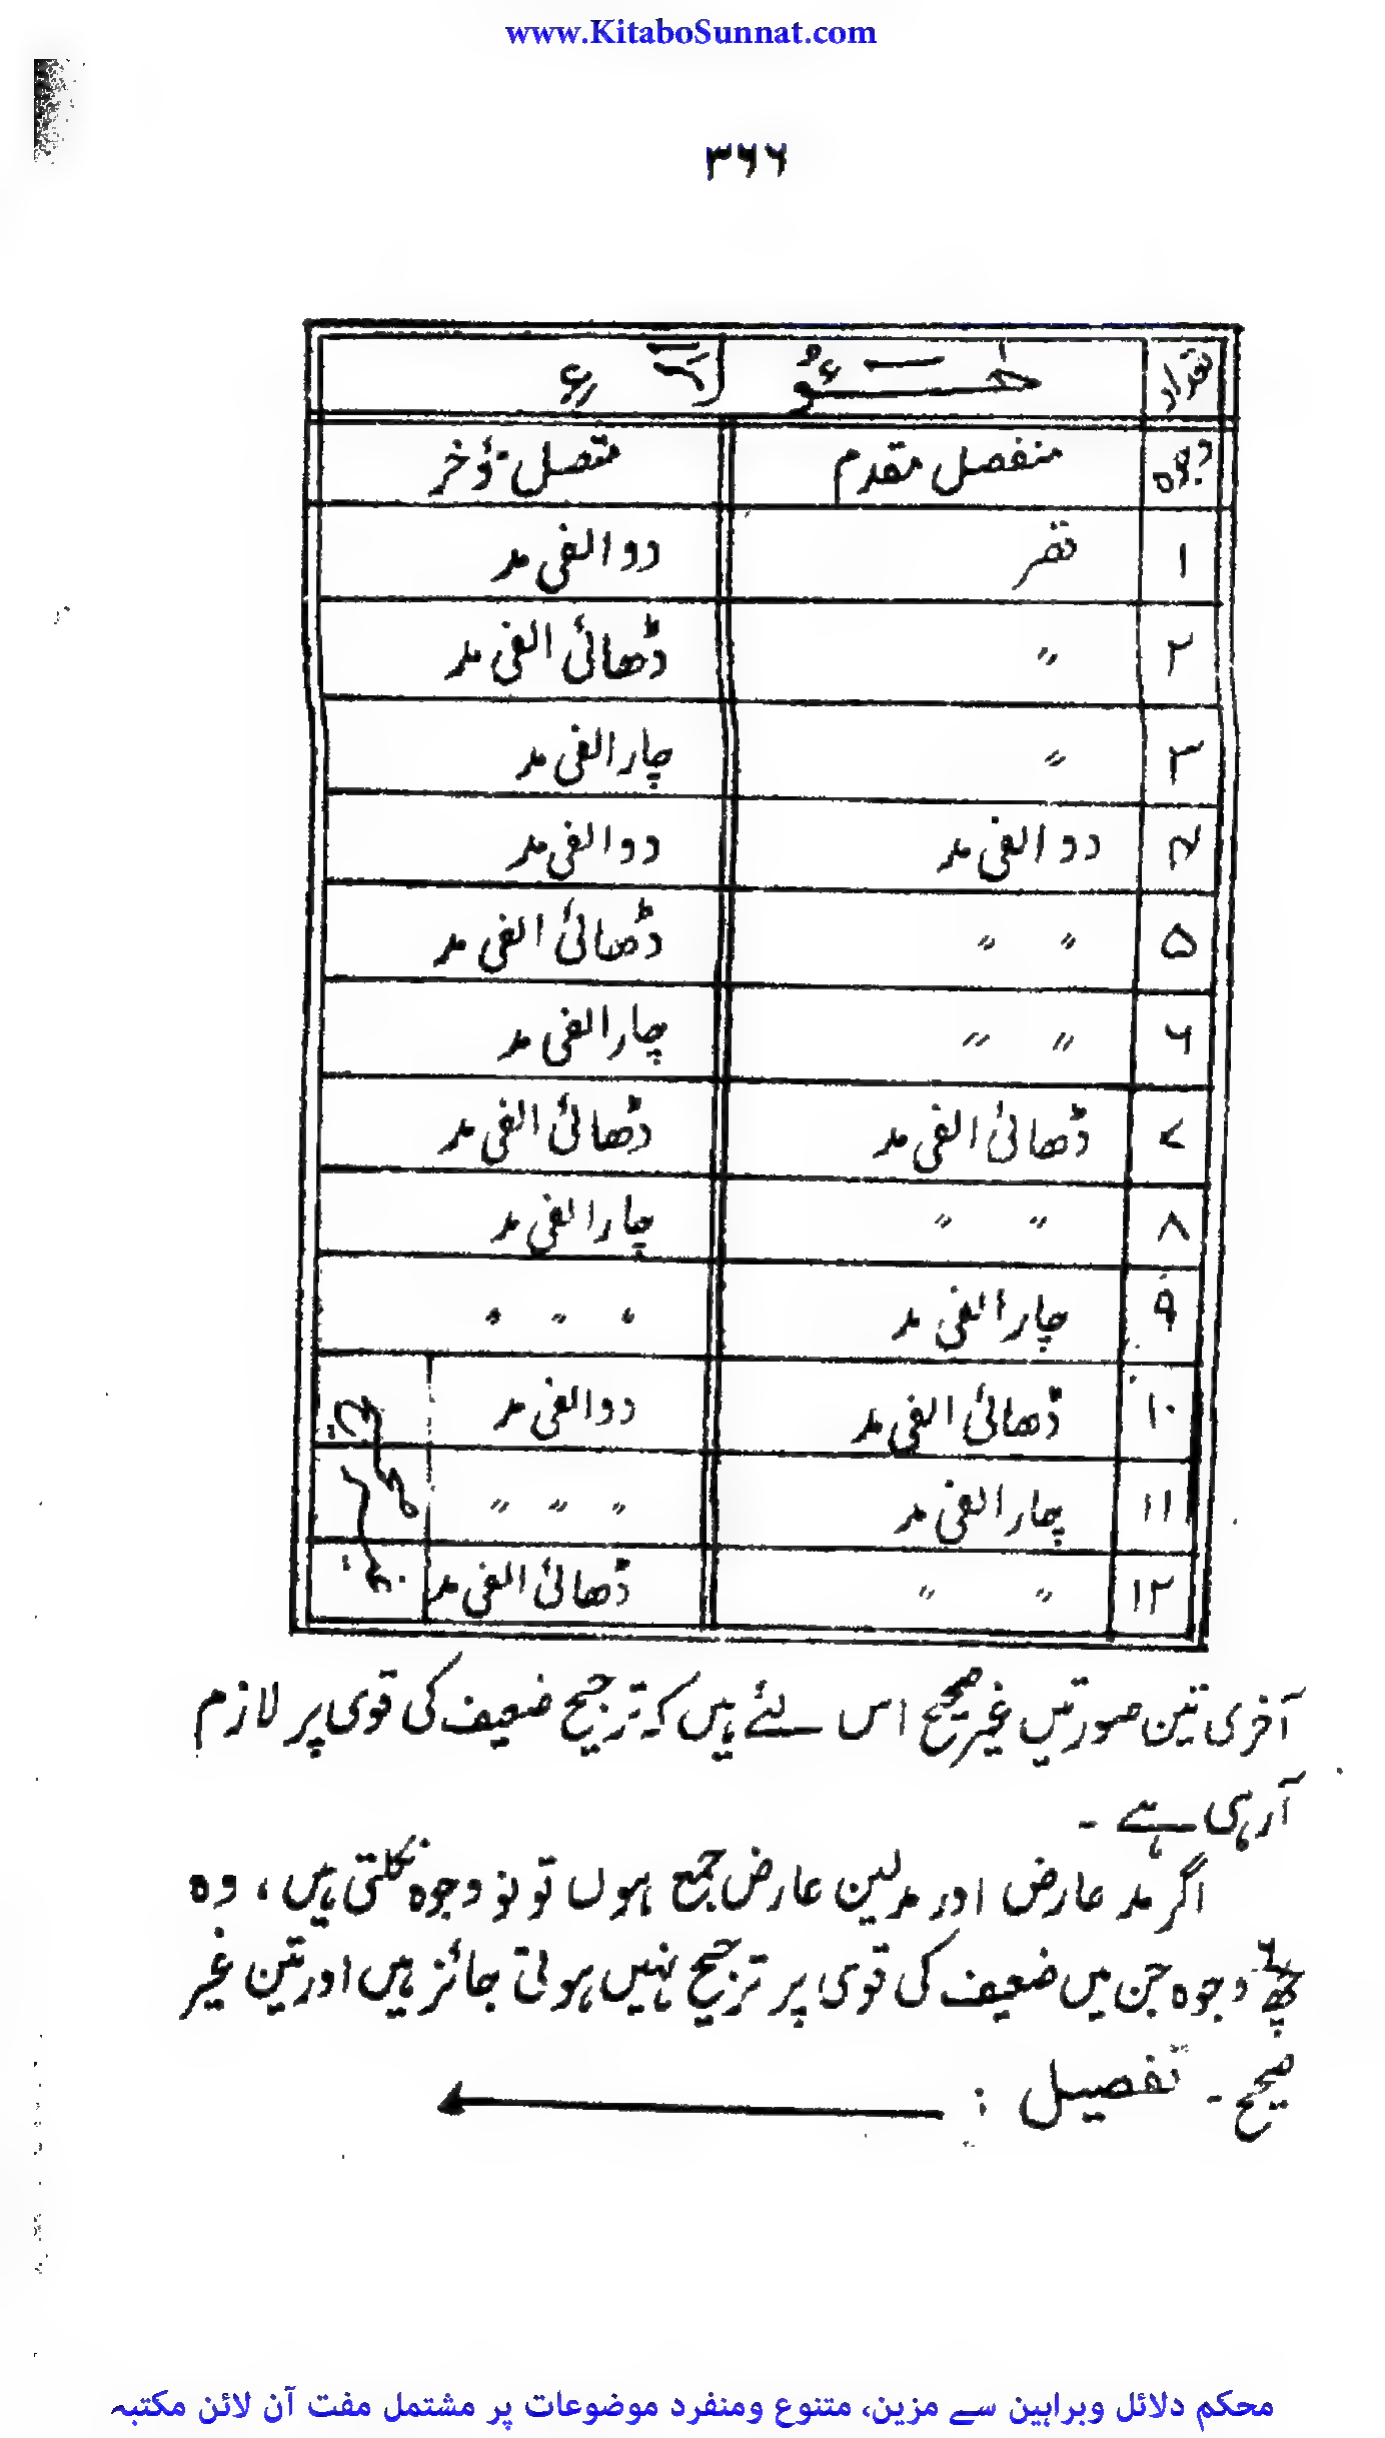 www.KitaboSunnat.com
۳۶۶
تعداد هٰٓؤُلَآءِ
وجوہ منفصل مقدم متصل مؤخر
۱ قصر دو الفی مد
۲ 〃 ڈھائی الفی مد
۳ 〃 چار الفی مد
۴ دو الفی مد دو الفی مد
۵ 〃 〃 ڈھائی الفی مد
۶ 〃 〃 چار الفی مد
۷ ڈھائی الفی مد ڈھائی الفی مد
۸ 〃 〃 چار الفی مد
۹ چار الفی مد 〃 〃 〃
۱۰ ڈھائی الفی مد دو الفی مد
۱۱ چار الفی مد 〃 〃 〃
۱۲ 〃 〃 ڈھائی الفی مد
آخری تین صورتیں غیر صحیح اس لئے ہیں کہ ترجیح ضعیف کی قوی پر لازم
آرہی ہے ۔
اگر مد عارض اور مد لین عارض جمع ہوں تو نو وجوہ نکلتی ہیں ، وہ
چھ۶ وجوہ جن میں ضعیف کی قوی پر ترجیح نہیں ہوتی جائز ہیں اور تین غیر
صحیح ۔ تفصیل :
محکم دلائل وبراہین سے مزین، متنوع ومنفرد موضوعات پر مشتمل مفت آن لائن مکتبہ